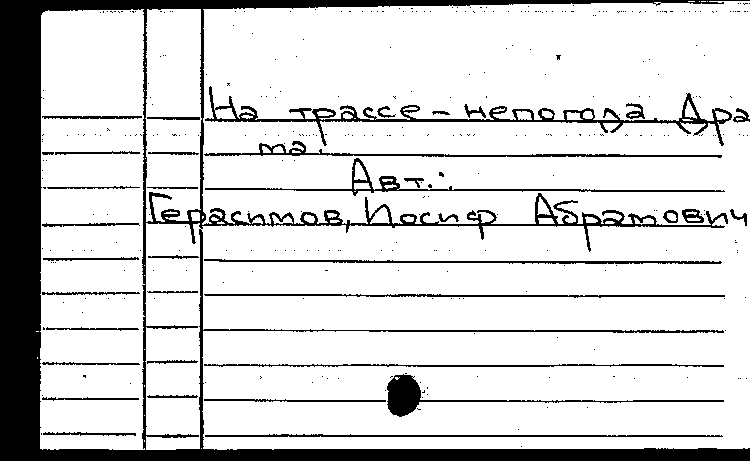 На трассе - непогода. Дра
ма.
Авт.:
Герасимов, Иосиф Абрамович